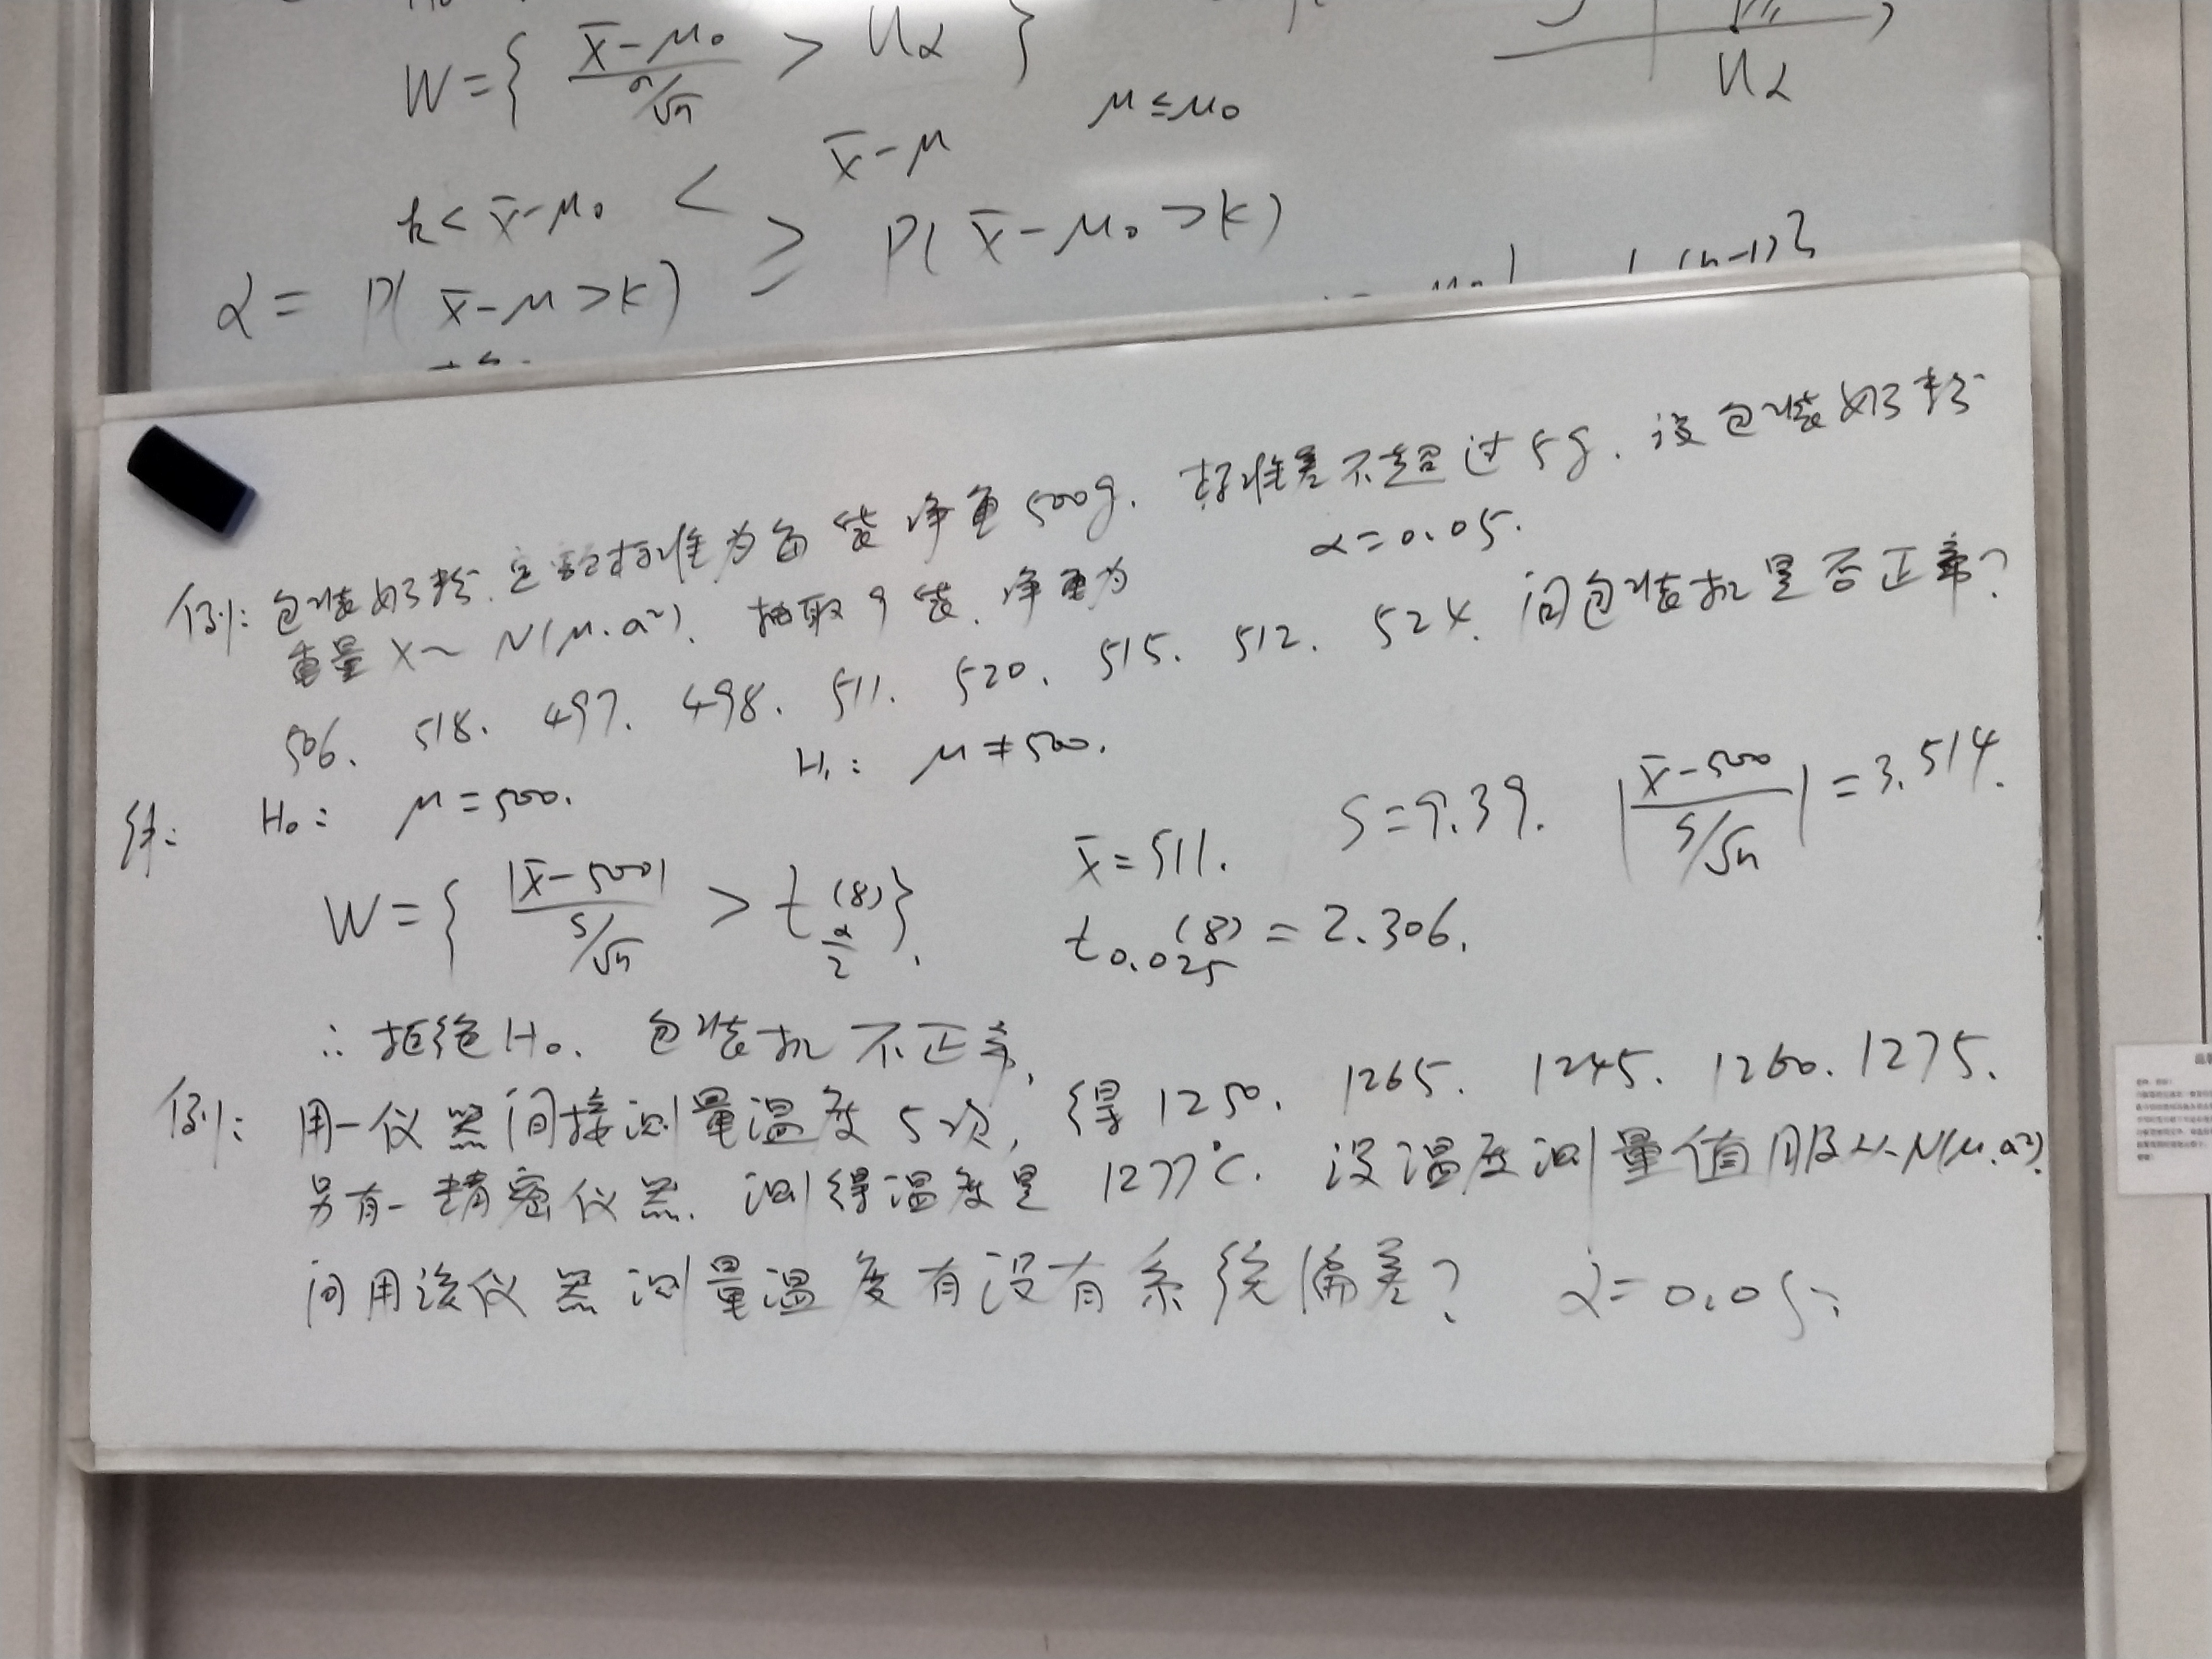 W={ (x̄-μ₀)/(σ/√n) > U_α }
U_α
μ≤μ₀
x̄-μ
k< x̄-μ₀ <
α= P( x̄-μ>k) ≥ P( x̄-μ₀>k)
(n-1)}
例: 包装奶粉. 定额标准为每袋净重500g. 标准差不超过5g. 设包装奶粉
重量 X~ N(μ.σ²). 抽取9袋. 净重为 α=0.05.
506. 518. 497. 498. 511. 520. 515. 512. 524. 问包装机是否正常?
解: H₀: μ=500. H₁: μ≠500.
W={ |x̄-500|/(s/√n) > t_{α/2}(8)}. x̄=511. S=9.39. |(x̄-500)/(s/√n)|=3.514.
t_{0.025}(8) = 2.306.
∴ 拒绝H₀. 包装机不正常.
例: 用一仪器间接测量温度5次, 得1250. 1265. 1245. 1260. 1275.
另有一精密仪器. 测得温度是 1277℃. 设温度测量值服从N(μ.σ²).
问用该仪器测量温度有没有系统偏差? α=0.05.